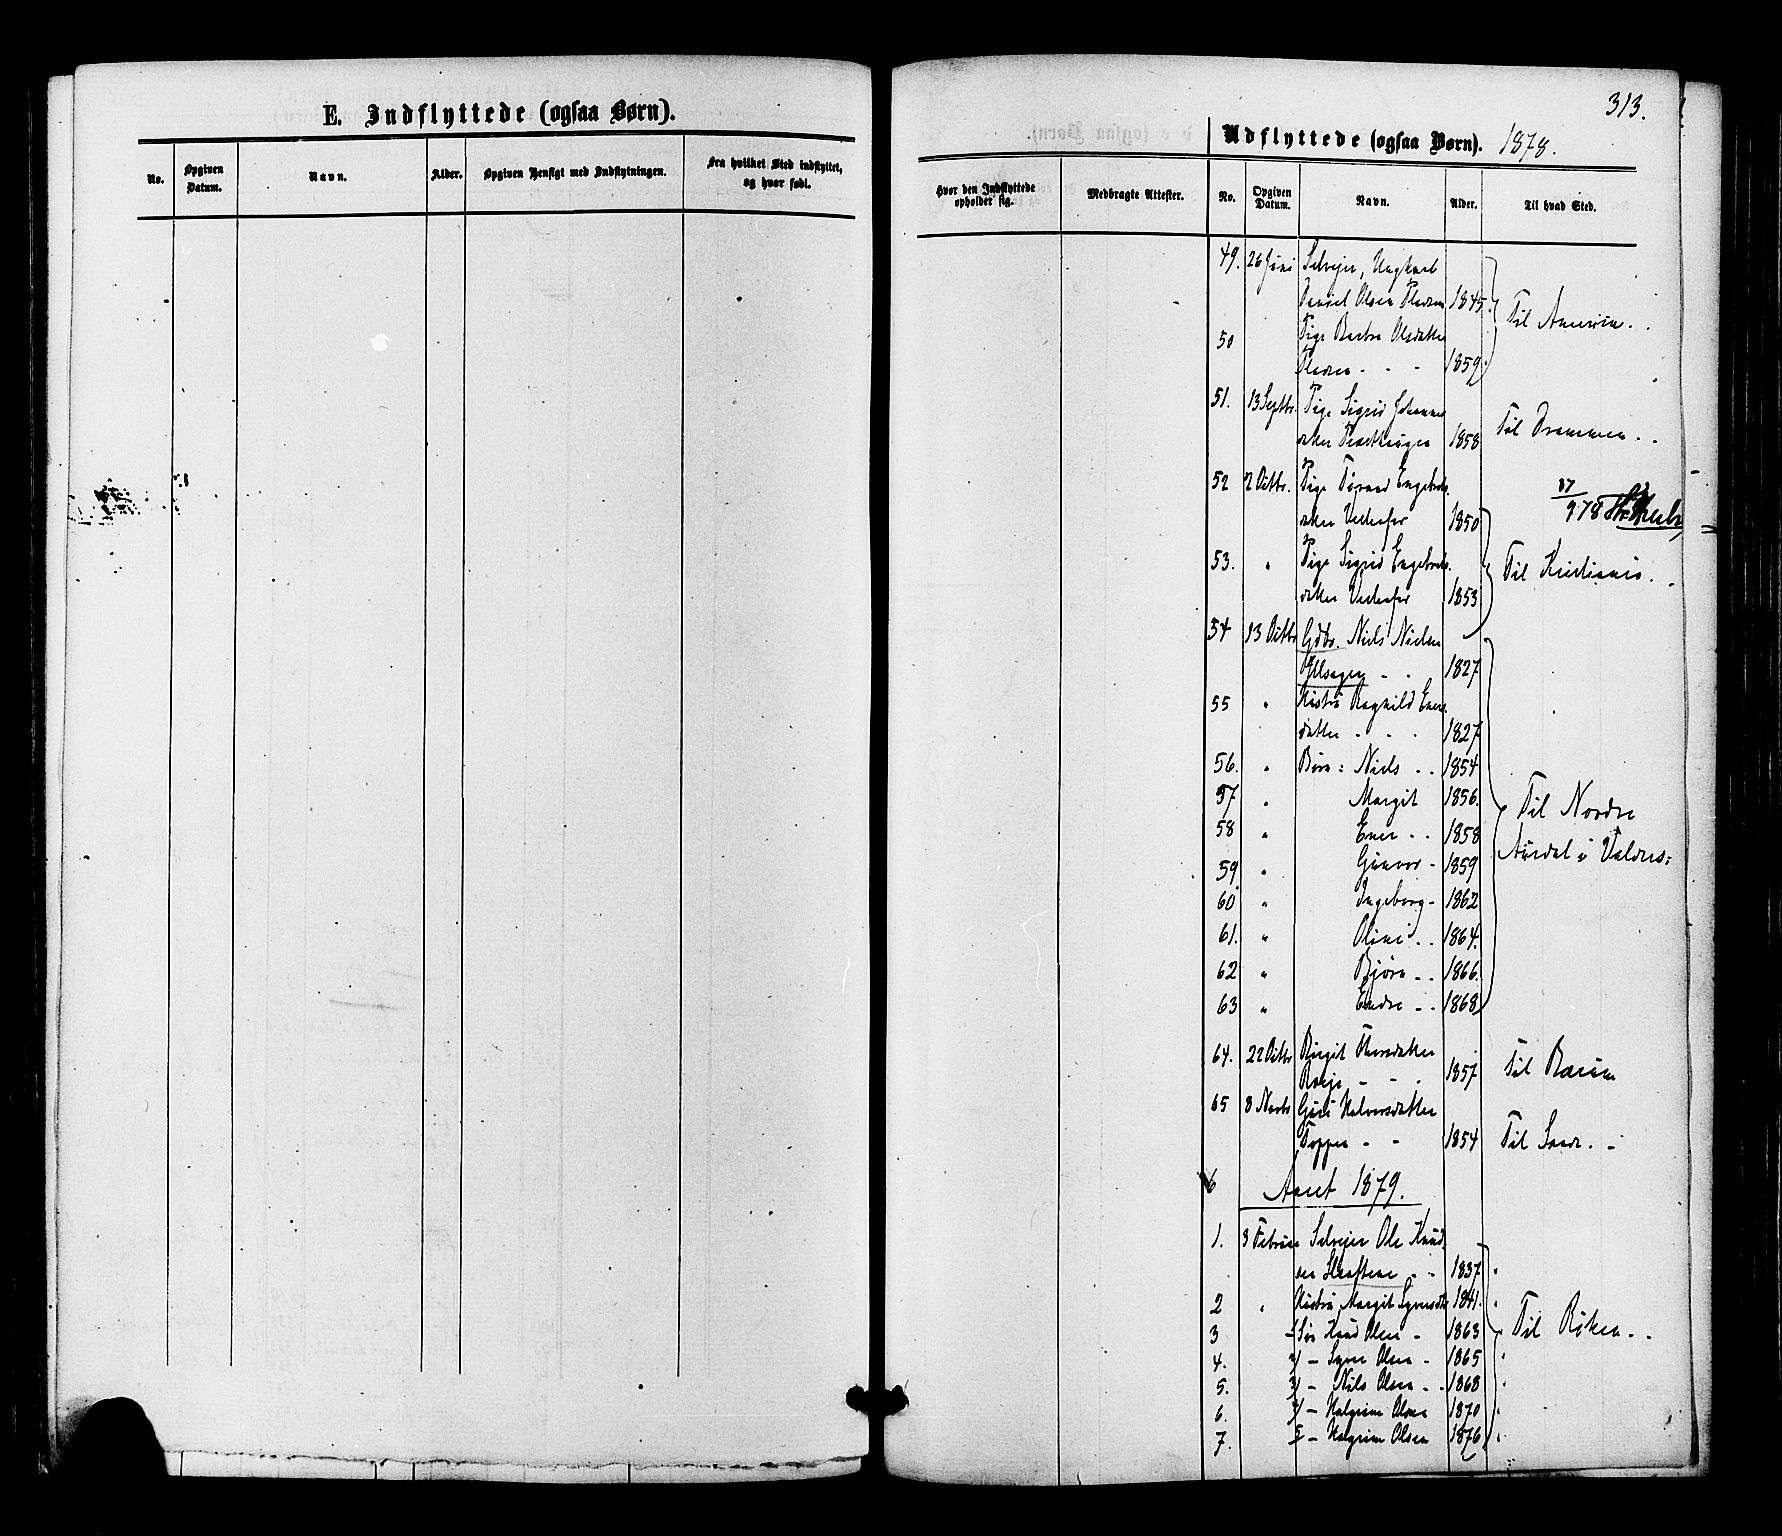 E. Indflyttede (ogsaa Børn).
No. Opgiven Datum. Navn. Alder. Opgiven Hensigt med Indflytningen. Fra hvilket Sted indflyttet, og hvor født.
313.
Udflyttede (ogsaa Børn). 1878.
Hvor den Indflyttede opholder sig. Medbragte Attester. No. Opgiven Datum. Navn. Alder. Til hvad Sted.
49. 26 Juni Selveier, Ungkarl
Olsen 1845. Til Amerika.
50 Pige Barbra Olsdatter
1859.
51. 13 Septbr. Pige Sigrid Johannes
datter 1858 Til Drammen
52 2 Octbr. Pige Engebrets
datter 1850
53. " Pige Sigrid Engebrets
datter 1853 Til Kristiania.
54 13 Octbr Gdbr. Niels Nielsen
1827
55 " Hustru Ragnild Eners
datter 1827
56. " Børn: Niels 1854
57 " Margit 1856.
58 " Ener 1858
59 " Gunvor 1859
60 " Ingeborg 1862
61. " Oline 1864.
62 " Bjørn 1866.
63 " Endre 1868
Til Nordre
Aurdal i Valdres
64. 22 Octbr Birgit Thorsdatter
1857 Til Bærum
65 8 Novbr Guri Halvorsdatter
1854 Til Sande.
Aaret 1879.
1. 3 Februar Selveier Ole Knud
sen 1837
2 " Hustru Margit Syversdtr 1841.
3 Søn Knud Olsen 1863 Til Røken
4. 2/ - Syver Olsen 1865
5. 3/ - Nils Olsen 1868
6. 4/ - Halgrim Olsen 1870
7. 5/ - Halgrim Olsen 1876